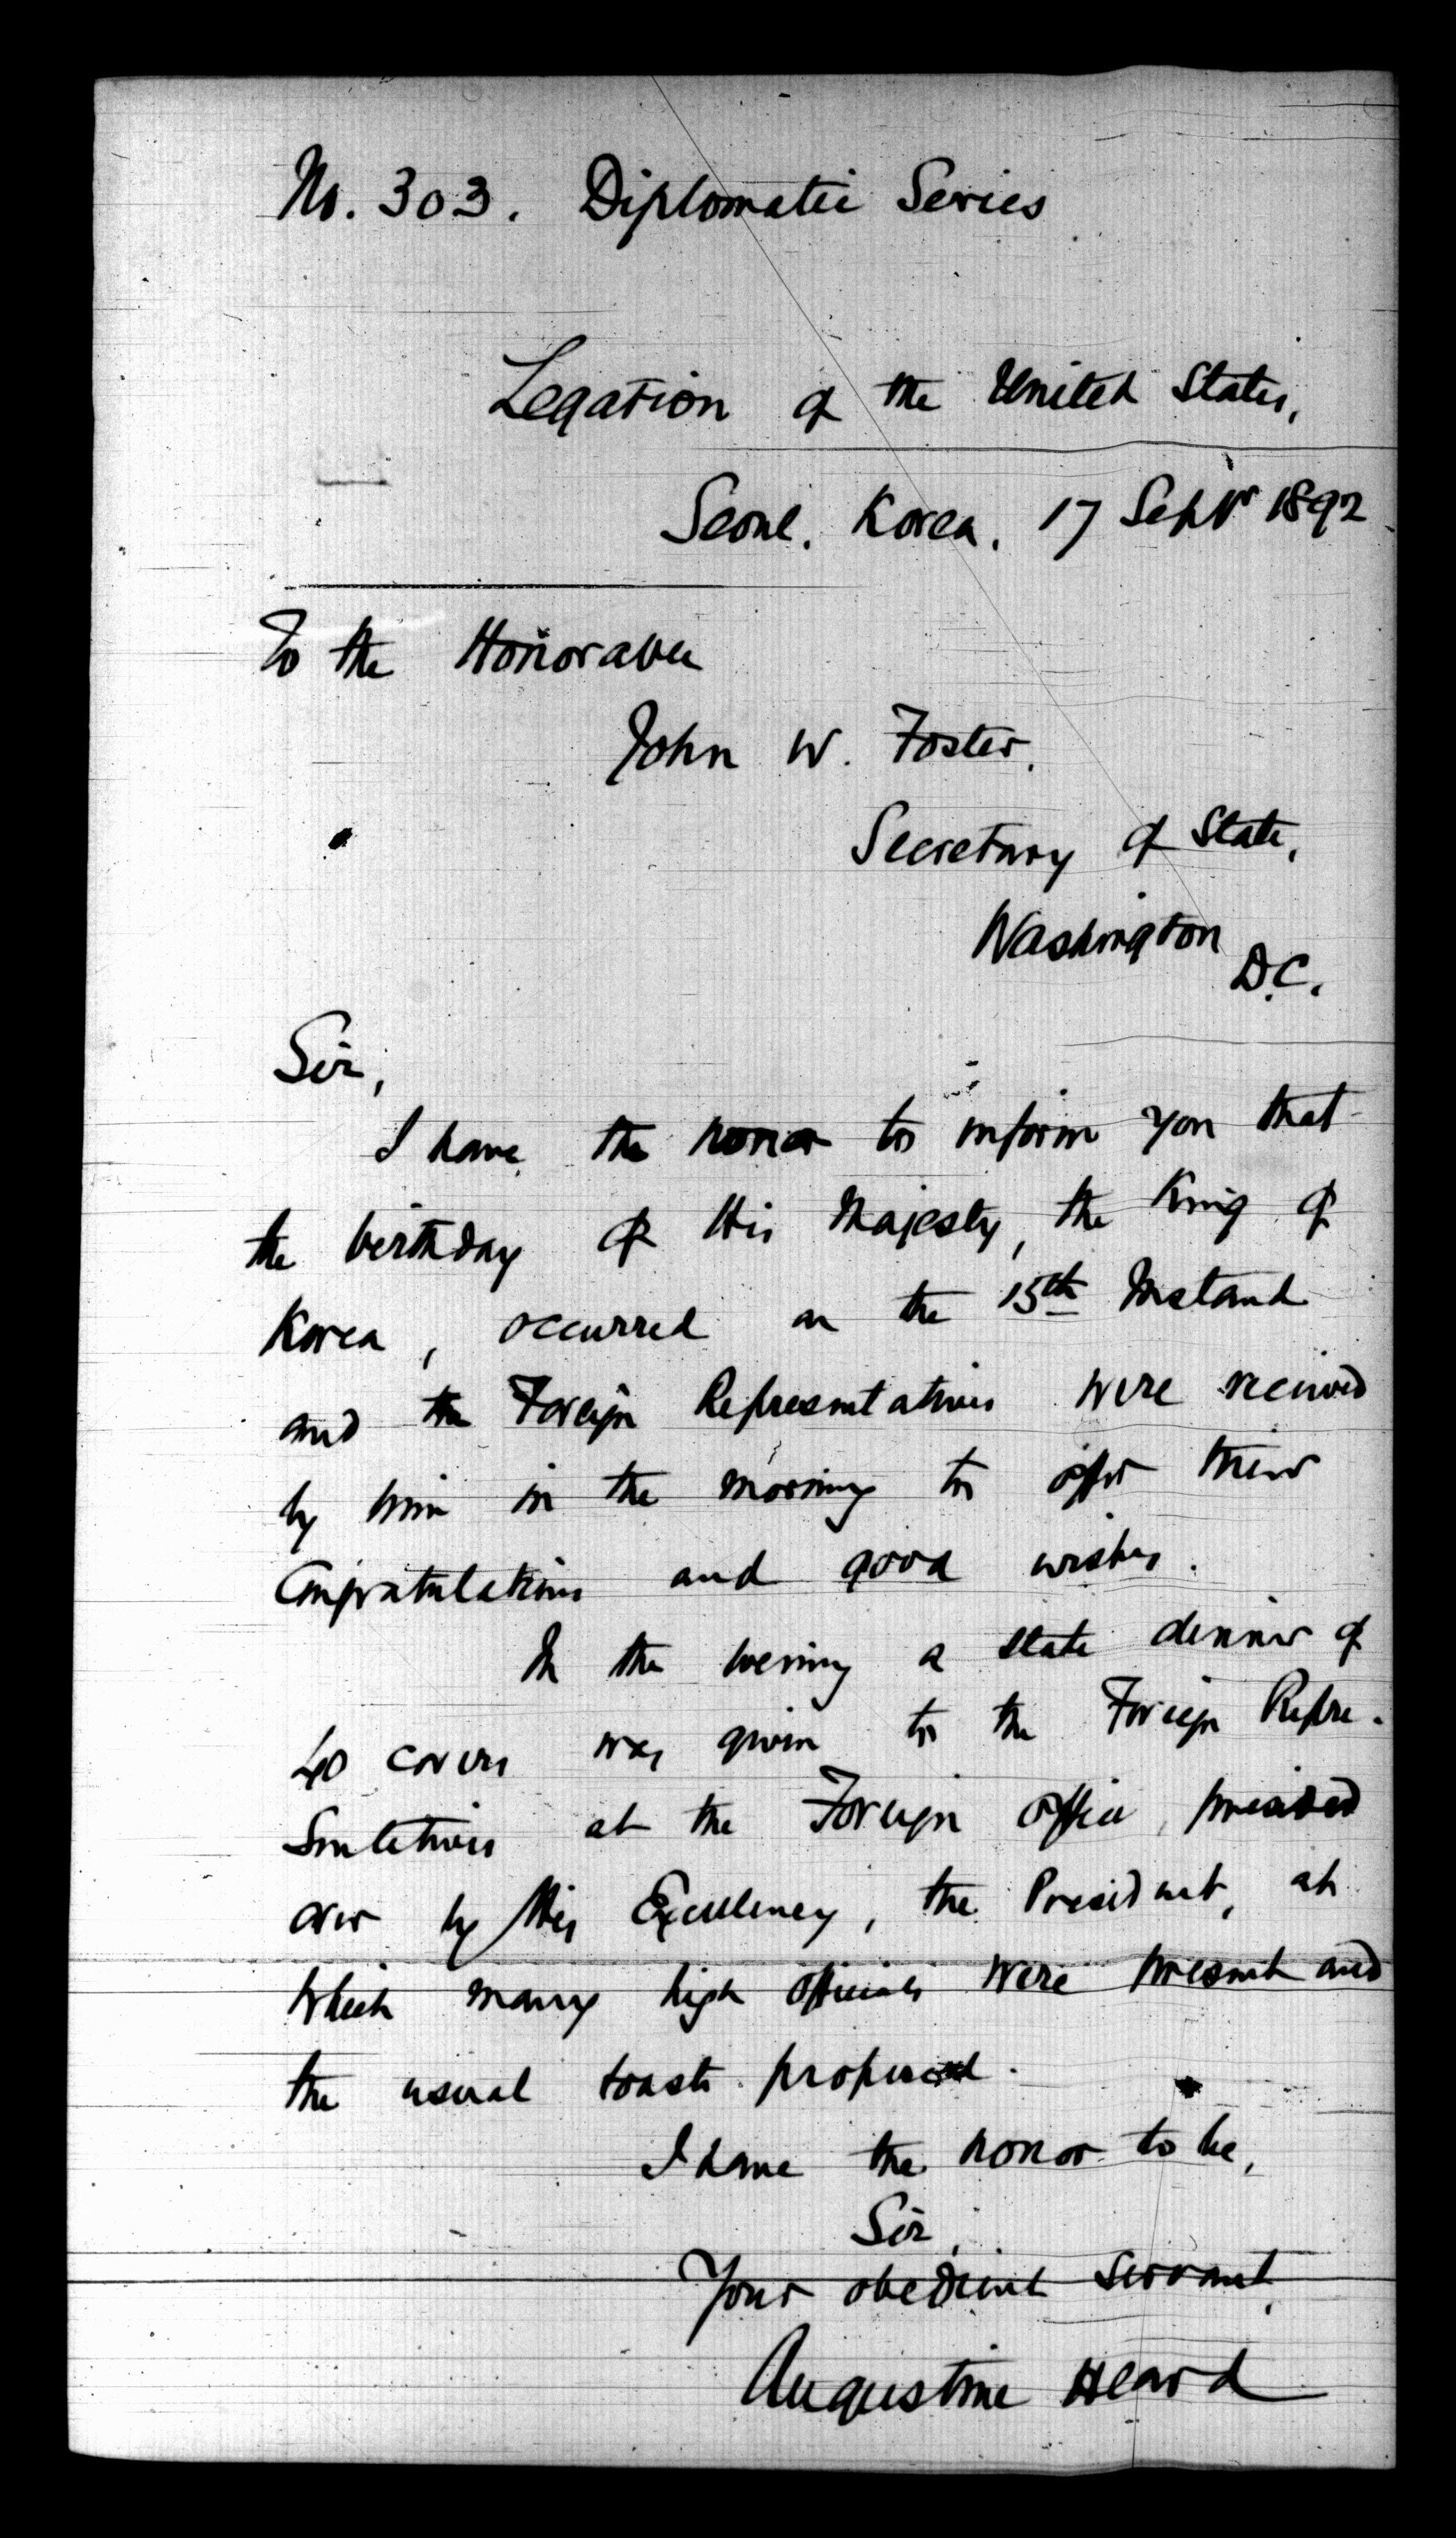 No. 303. Diplomatic Series
Legation of the United States,
Seoul. Korea. 17 Septr 1892
To the Honorable
John W. Foster,
Secretary of State,
Washington
D.C.
Sir,
I have the honor to inform you that
the birthday of His Majesty, the King of
Korea, occurred on the 15th Instand
and the Foreign Representatives were received
by him in the morning to offer their
Congratulations and good wishes.
In the evening a state dinner of
40 covers was given to the Foreign Repre-
sentatives at the Foreign Office, presided
over by His Excellency, the President, at
which many high officials were present and
the usual toasts proposed.
I have the honor to be,
Sir,
Your obedient servant,
Augustine Heard